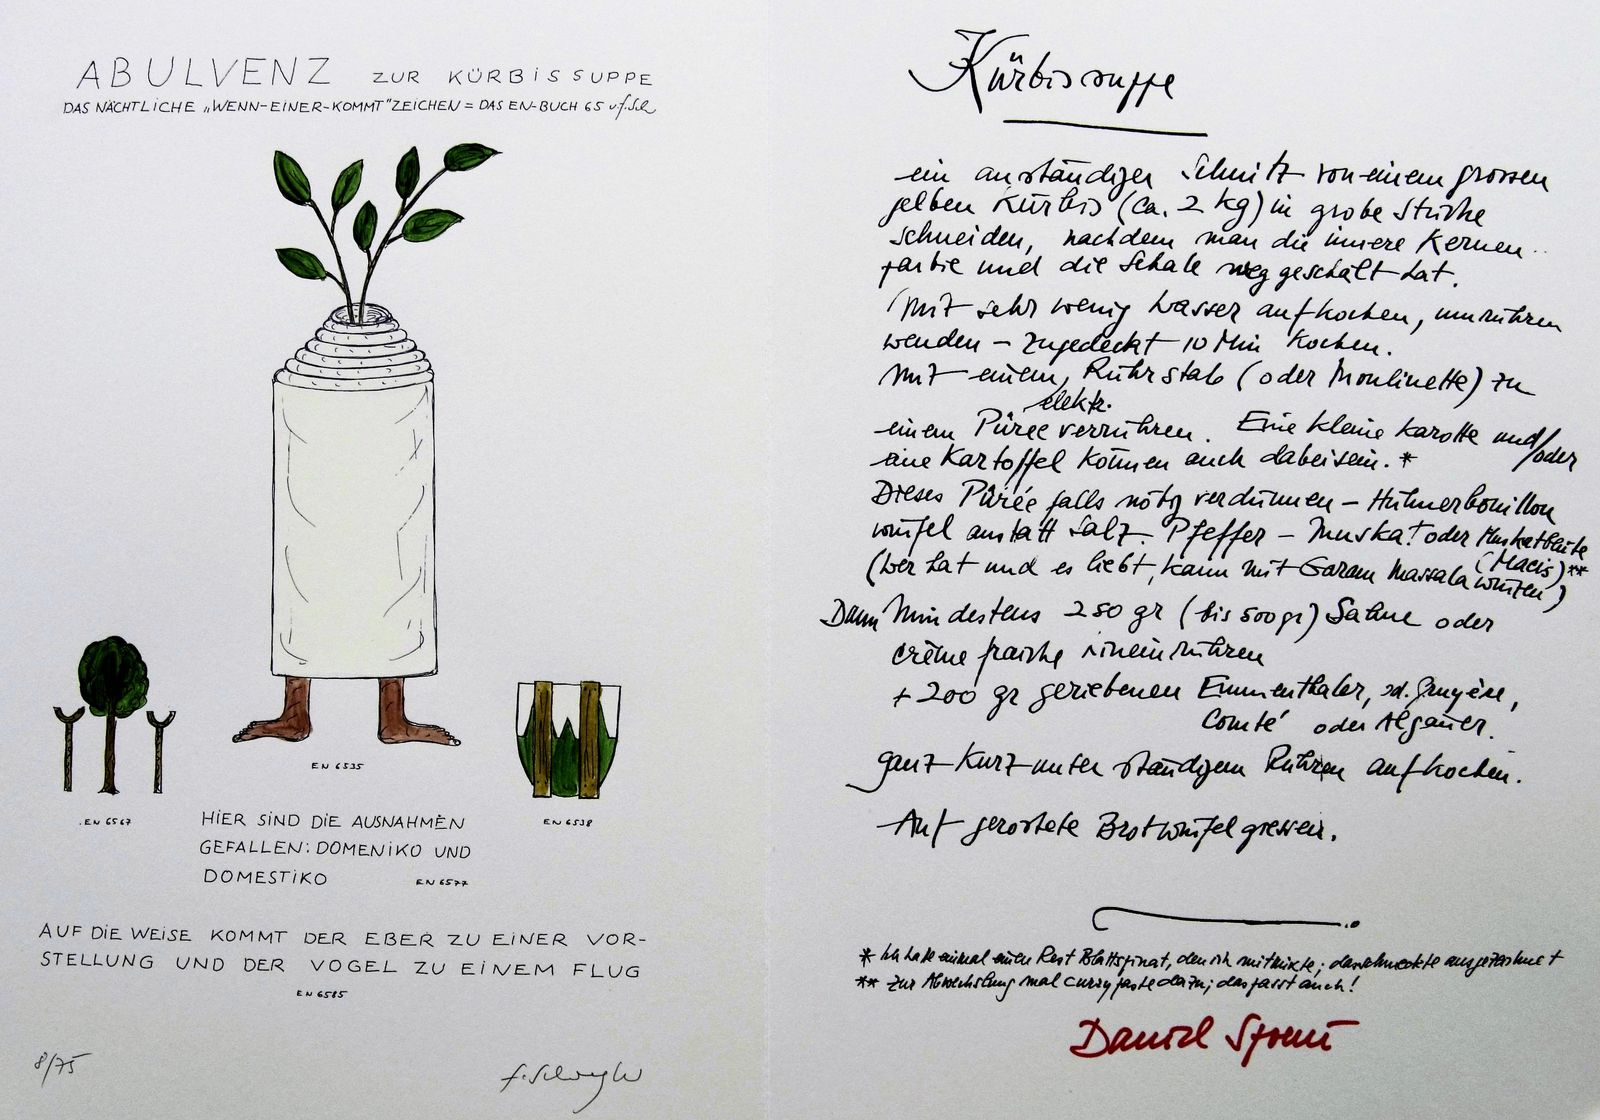 ABULVENZ ZUR KÜRBISSUPPE
DAS NÄCHTLICHE „WENN-EINER-KOMMT" ZEICHEN = DAS EN-BUCH 65 v. f. Sch
EN 6535
EN 6567
EN 6538
HIER SIND DIE AUSNAHMEN
GEFALLEN: DOMENIKO UND
DOMESTIKO EN 6577
AUF DIE WEISE KOMMT DER EBER ZU EINER VOR-
STELLUNG UND DER VOGEL ZU EINEM FLUG
EN 6585
8/75
Kürbissuppe
ein anständiger Schnitz von einem grossen
gelben Kürbis (ca. 2 kg) in grobe Stücke
schneiden, nachdem man die innere Kernen-
partie und die Schale weggeschält hat.
Mit sehr wenig Wasser aufkochen, umrühren
wenden – zugedeckt 10 Min kochen.
Mit einem, Rührstab (oder Moulinette) zu
elektr.
einem Püree verrühren. Eine kleine Karotte und/oder
eine Kartoffel können auch dabeisein. *
Dieses Pürée falls nötig verdünnen – Hühnerbouillon
würfel anstatt Salz – Pfeffer – Muskat oder Muskatblüte
(Macis) **
(wer hat und es liebt, kann mit Garam Massala würzen)
Dann Mindestens 250 gr (bis 500 gr) Sahne oder
crème fraiche hineinrühren
+ 200 gr geriebenen Emmenthaler, od. Gruyère,
Comté oder Algäuer.
ganz kurz unter ständigem Rühren aufkochen.
Auf geröstete Brotwürfel giessen.
* Ich hatte einmal einen Rest Blattspinat, den ich mitmixte; das schmeckte ausgezeichnet
** zur Abwechslung mal currypaste dazu; das passt auch!
Daniel Spoerri